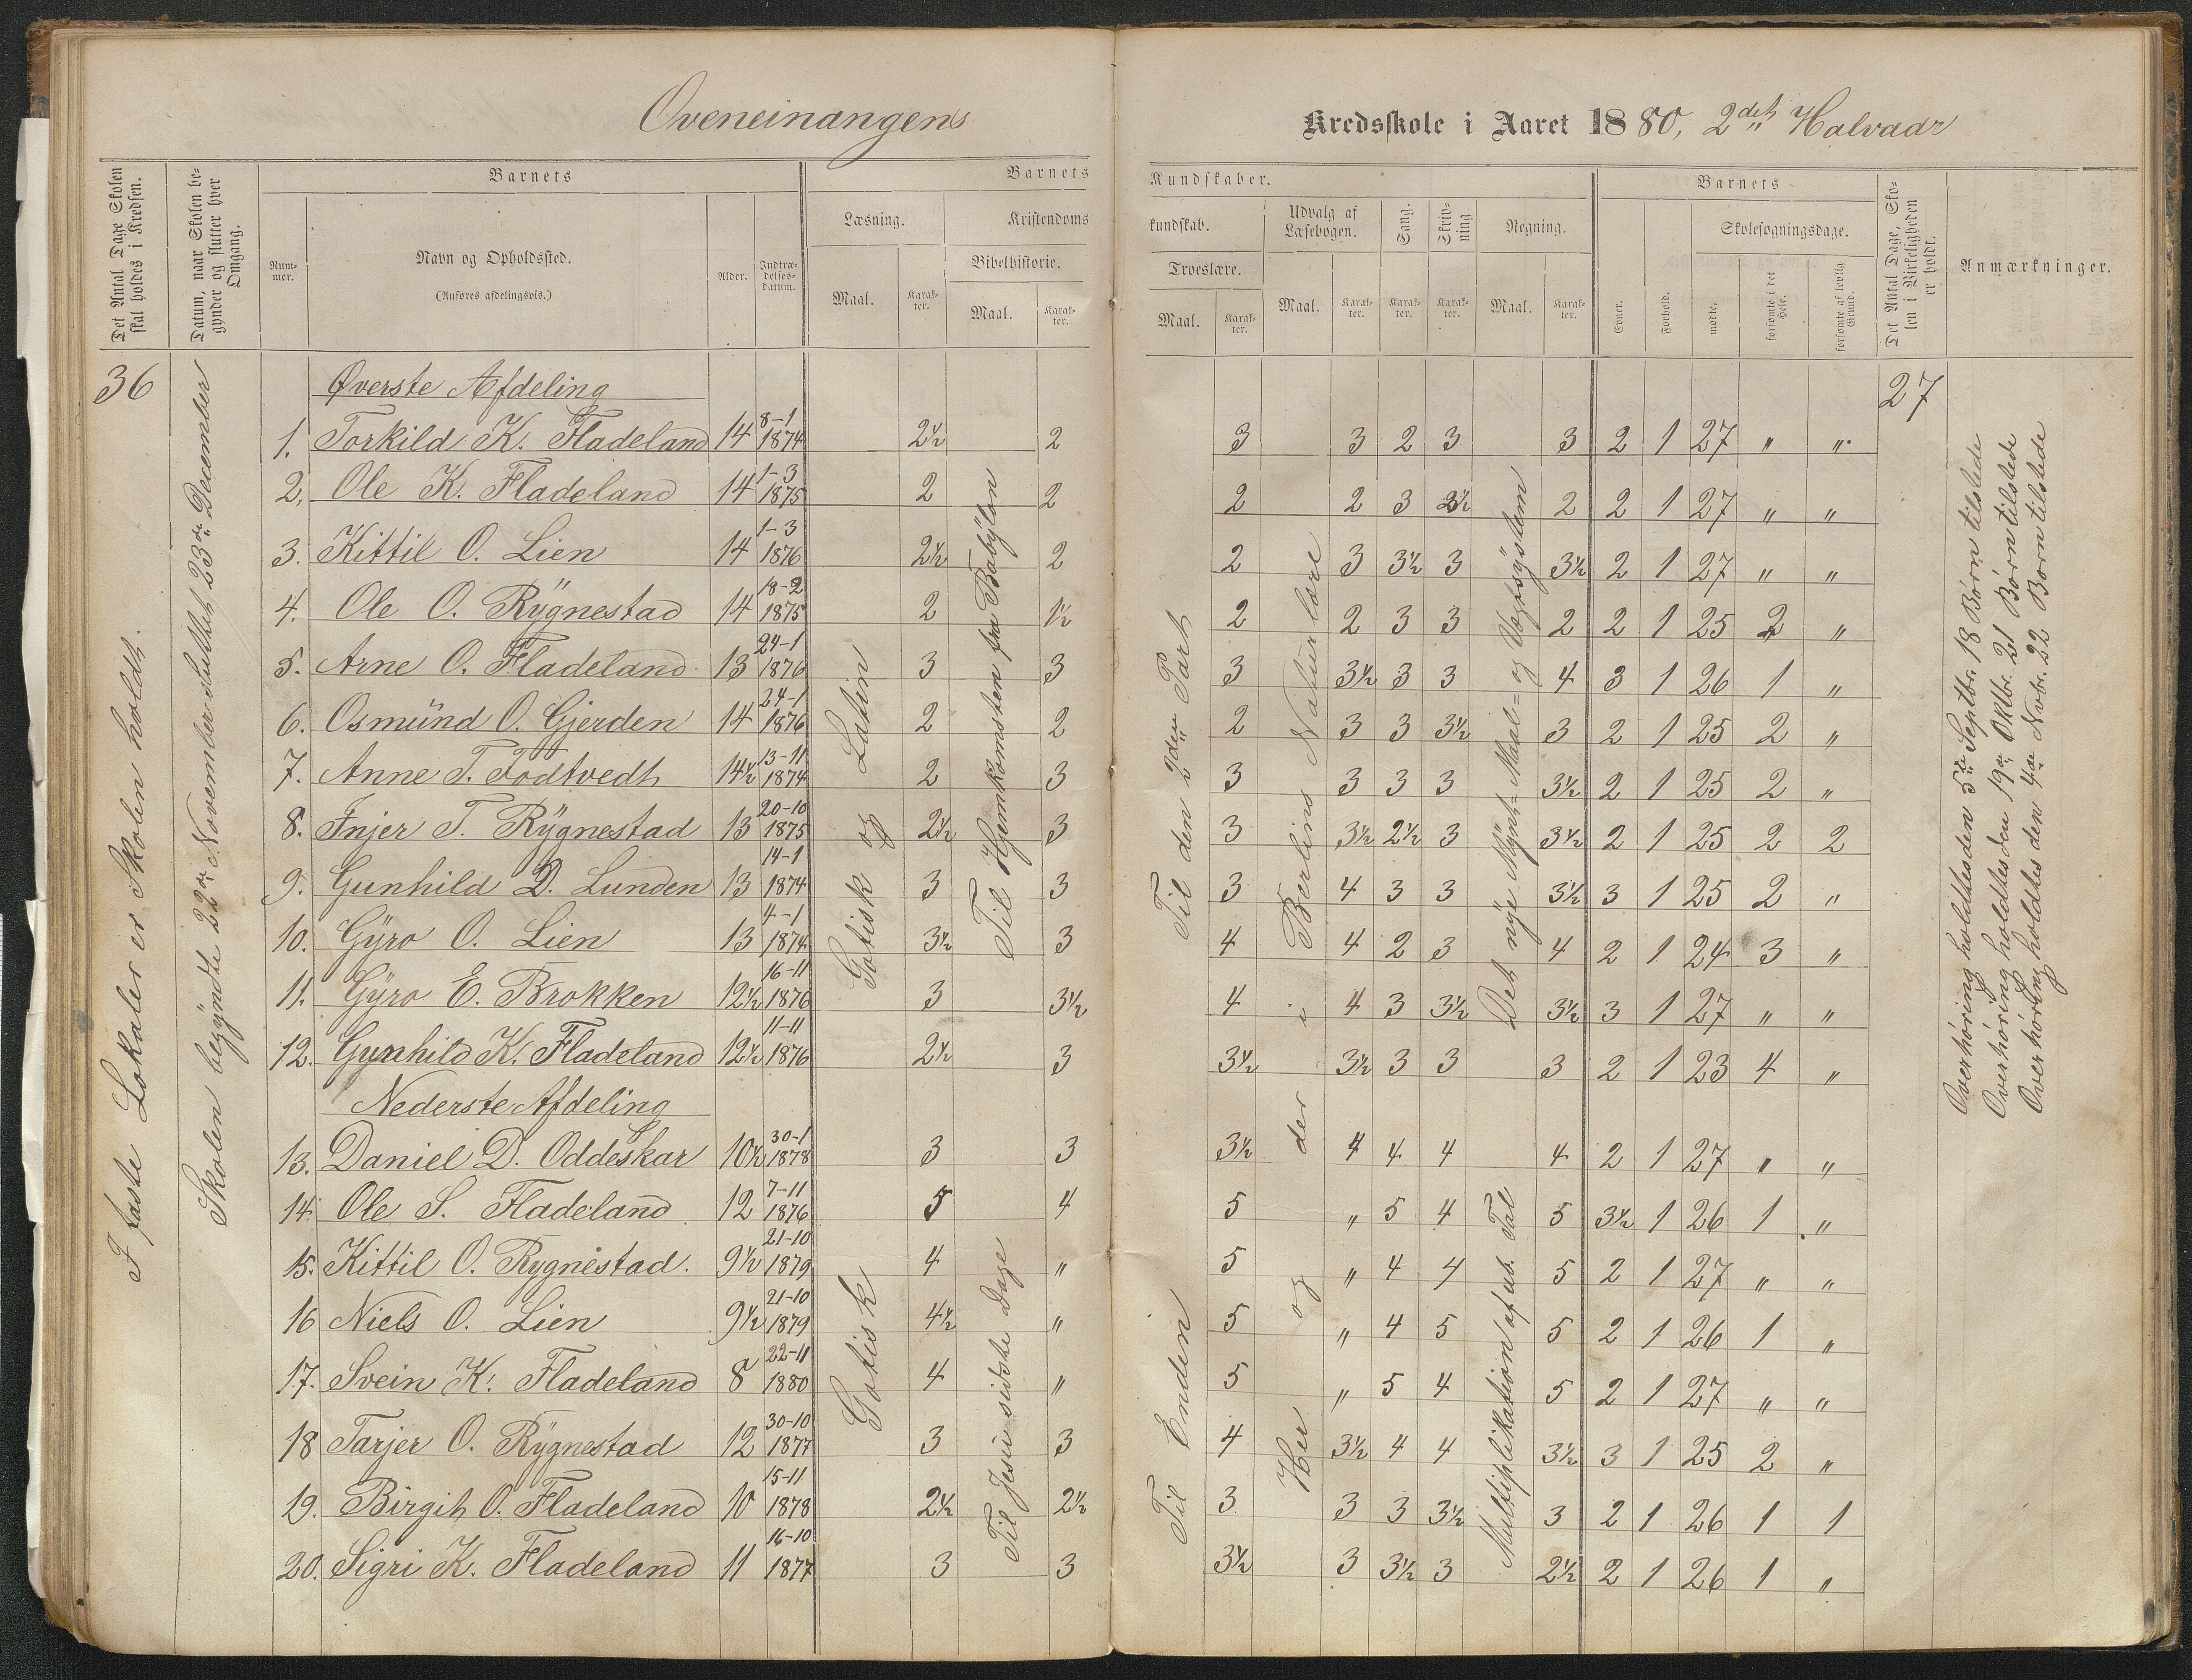 Oveneinangens Kredsskole i Aaret 1880, 2det Halvaar
Det Antal Dage Skolen skal holdes i Kredsen.
Datum, naar Skolen begynder og slutter hver Omgang.
Barnets
Nummer.
Navn og Opholdssted.
(Anføres afdelingsvis.)
Alder.
Indtrædelsesdatum.
Barnets Kundskaber.
Læsning.
Maal.
Karakter.
Kristendomskundskab.
Bibelhistorie.
Maal.
Karakter.
Troeslære.
Maal.
Karakter.
Udvalg af Læsebogen.
Maal.
Karakter.
Sang.
Karakter.
Skrivning
Karakter.
Regning.
Maal.
Karakter.
Barnets
Evner.
Forhold.
Skolesøgningsdage.
mødte.
forsømte i det Hele.
forsømte af lovlig Grund.
Det Antal Dage, Skolen i Virkeligheden er holdt.
Anmærkninger.
36
27
I faste Lokaler er Skolen holdt.
Skolen begyndte 22de November sluttet 23de December
Øverste Afdeling
1. Torkild K. Fladeland 14 8-1 1874 2½ 2 3 3 2 3 3 2 1 27 " "
2. Ole K. Fladeland 14 1-3 1875 2 2 2 2 3 2½ 2 2 1 27 " "
3. Kittil O. Lien 14 1-3 1876 2½ 2 2 3 3½ 3 3½ 2 1 27 " "
4. Ole O. Rÿgnestad 14 18-2 1875 2 1½ 2 2 3 3 2 2 1 25 2 "
5. Arne O. Fladeland 13 24-1 1876 3 3 3 3½ 3 3 4 3 1 26 1 "
6. Osmünd O. Gjerden 14 24-1 1876 2 2 2 3 3 3½ 3 2 1 25 2 "
7. Anne T. Todtvedt 14½ 13-11 1874 2 3 3 3 3 3 3½ 2 1 25 2 "
8. Injer T. Rÿgnestad 13 20-10 1875 2½ 3 3 3½ 2½ 3 3½ 2 1 25 2 2
9. Gunhild D. Lunden 13 14-1 1874 3 3 3 4 3 3 3½ 3 1 25 2 "
10. Gÿro O. Lien 13 4-1 1874 3½ 3 4 4 2 3 4 2 1 24 3 "
11. Gÿro E. Brokken 12½ 16-11 1876 3 3½ 4 4 3 3½ 3½ 3 1 27 " "
12. Gunhild K. Fladeland 12½ 11-11 1876 2½ 3 3½ 3½ 3 3 3 2 1 23 4 "
Nederste Afdeling
13. Daniel D. Oddeskar 10½ 30-1 1878 3 3 3½ 4 4 4 4 2 1 27 " "
14. Ole S. Fladeland 12 7-11 1876 5 4 5 " 5 4 5 3½ 1 26 1 "
15. Kittil O. Rygnestad. 9½ 21-10 1879 4 " 5 " 4 4 5 2 1 27 " "
16 Niels O. Lien 9½ 21-10 1879 4½ " 5 " 4 5 5 2 1 26 1 "
17. Svein K. Fladeland 8 22-11 1880 4 " 5 " 5 4 5 2 1 27 " "
18 Tarjer O. Rÿgnestad 12 30-10 1877 3 3 4 3½ 4 4 3½ 3 1 25 2 "
19. Birgit O. Fladeland 10 15-11 1878 2½ 2½ 3 3 3 3½ 3 2 1 26 1 1
20. Sigri K. Fladeland 11 16-10 1877 3 3 3½ 3 3½ 3 2½ 2 1 26 1 "
Gotisk og Latin
Gotisk
Til Hjemkomsten fra Babÿlon
Til Jesu sidste Dage
Til den 2den Part
Til Enden
Her og der i Berlins Naturlære
Det nÿe Mÿnt= Maal= og Vægtsÿstem
Multiplikation af ub. Tal
Overhøring holdtes den 5te Septbr. 18 Børn tilstede
Overhøring holdtes den 19de Oktbr. 21 Børn tilstede
Overhøring holdtes den 4de Nvbr. 22 Børn tilstede